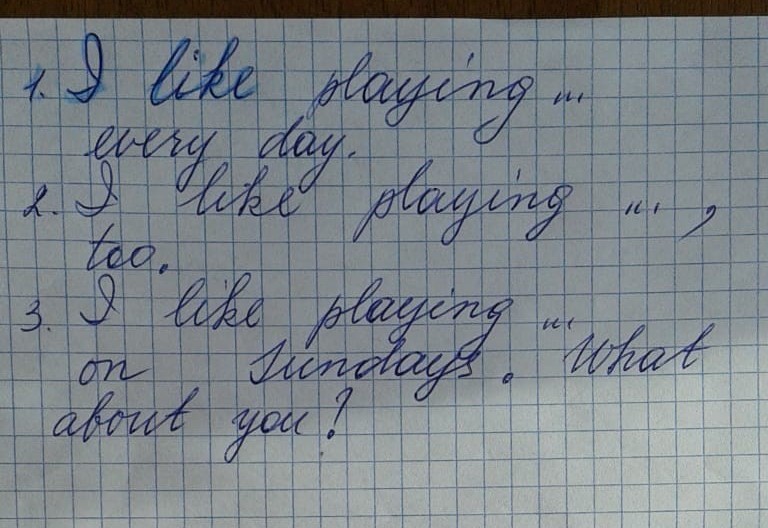 1. I like playing ...
every day.
2. I like playing ... ,
too.
3. I like playing ...
on Sundays. What
about you?